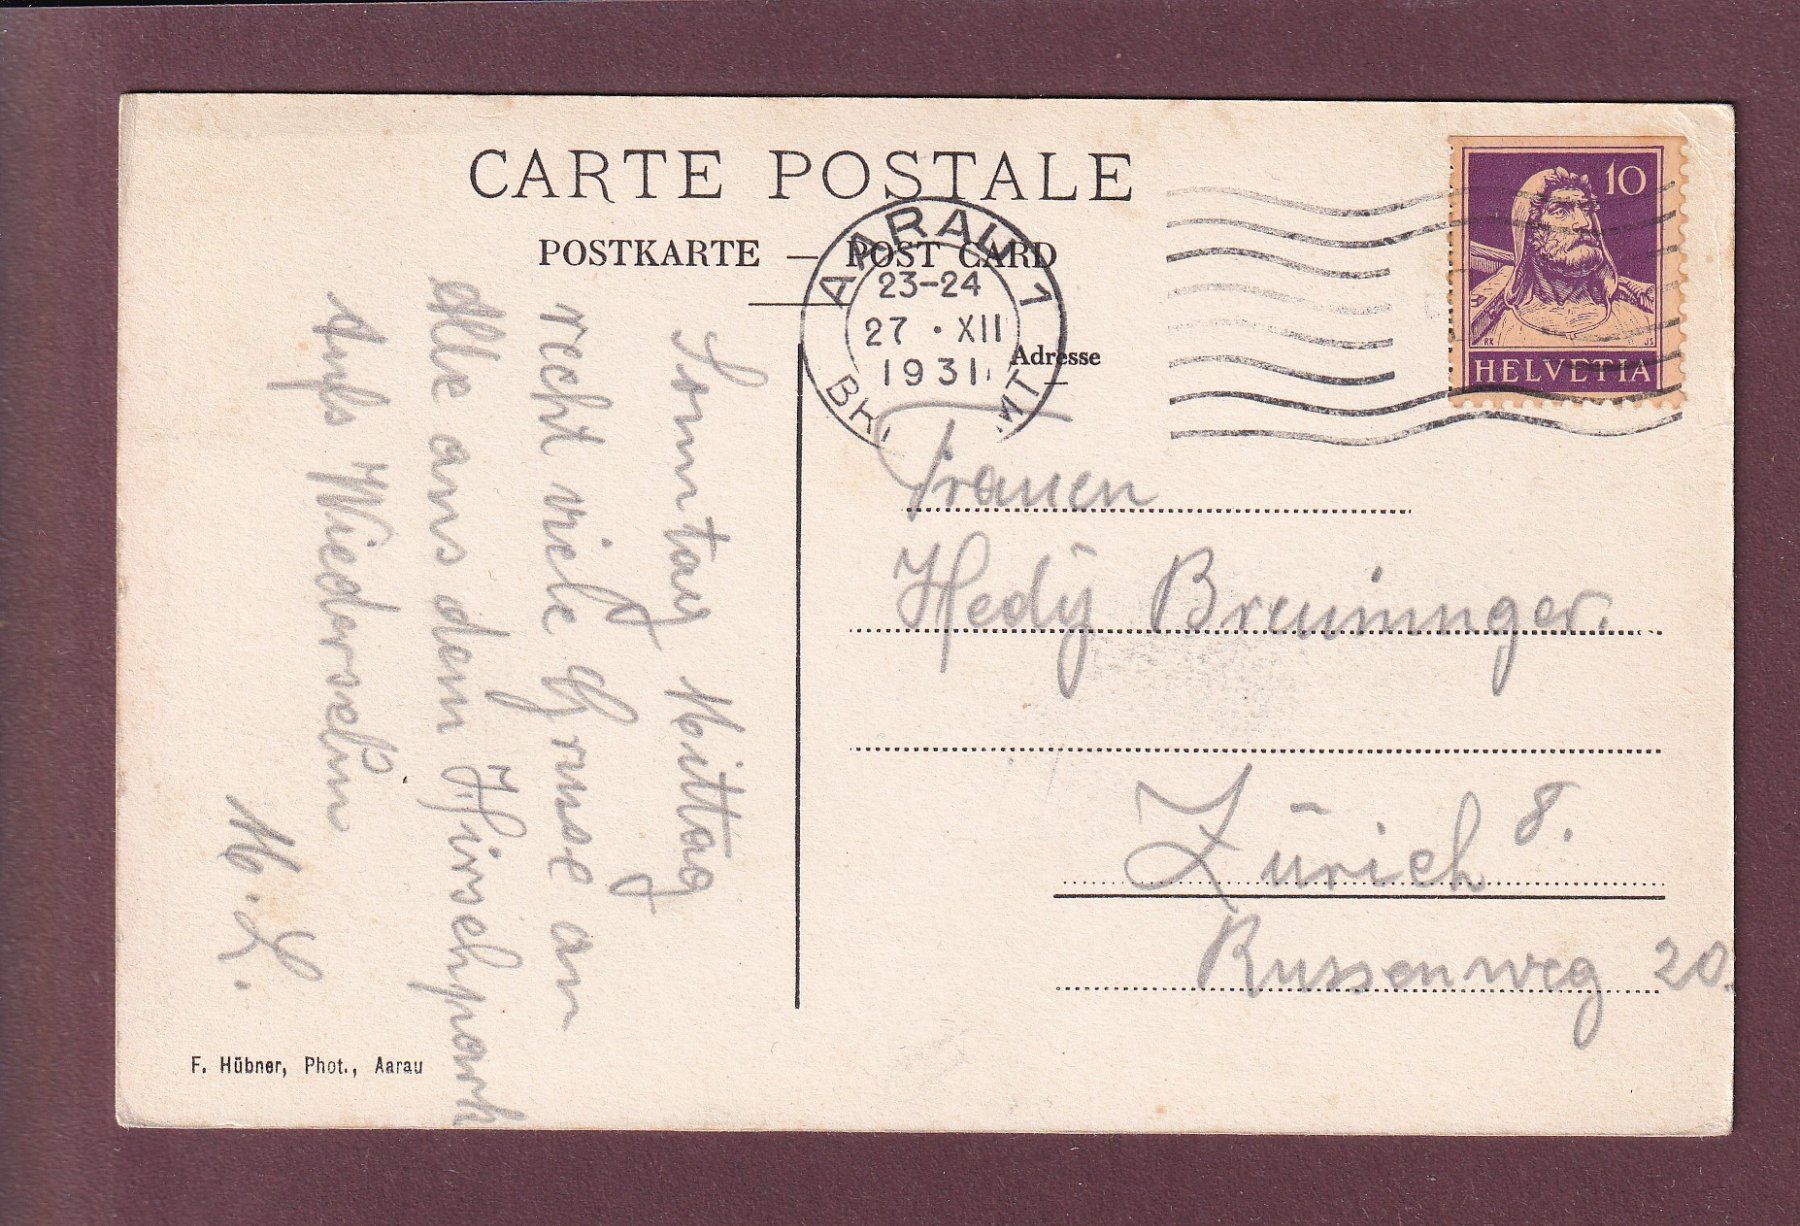 CARTE POSTALE
POSTKARTE — POST CARD
AARAU 1
23-24
27 · XII
1931
Adresse
10
HELVETIA
Sonntag Mittag
recht viele Grüsse an
Alle aus dem Hirschpark
Aufs Wiedersehn
M. L.
Frauen
Hedÿ Breuninger.
Zürich 8.
Russenweg 20.
F. Hübner, Phot., Aarau